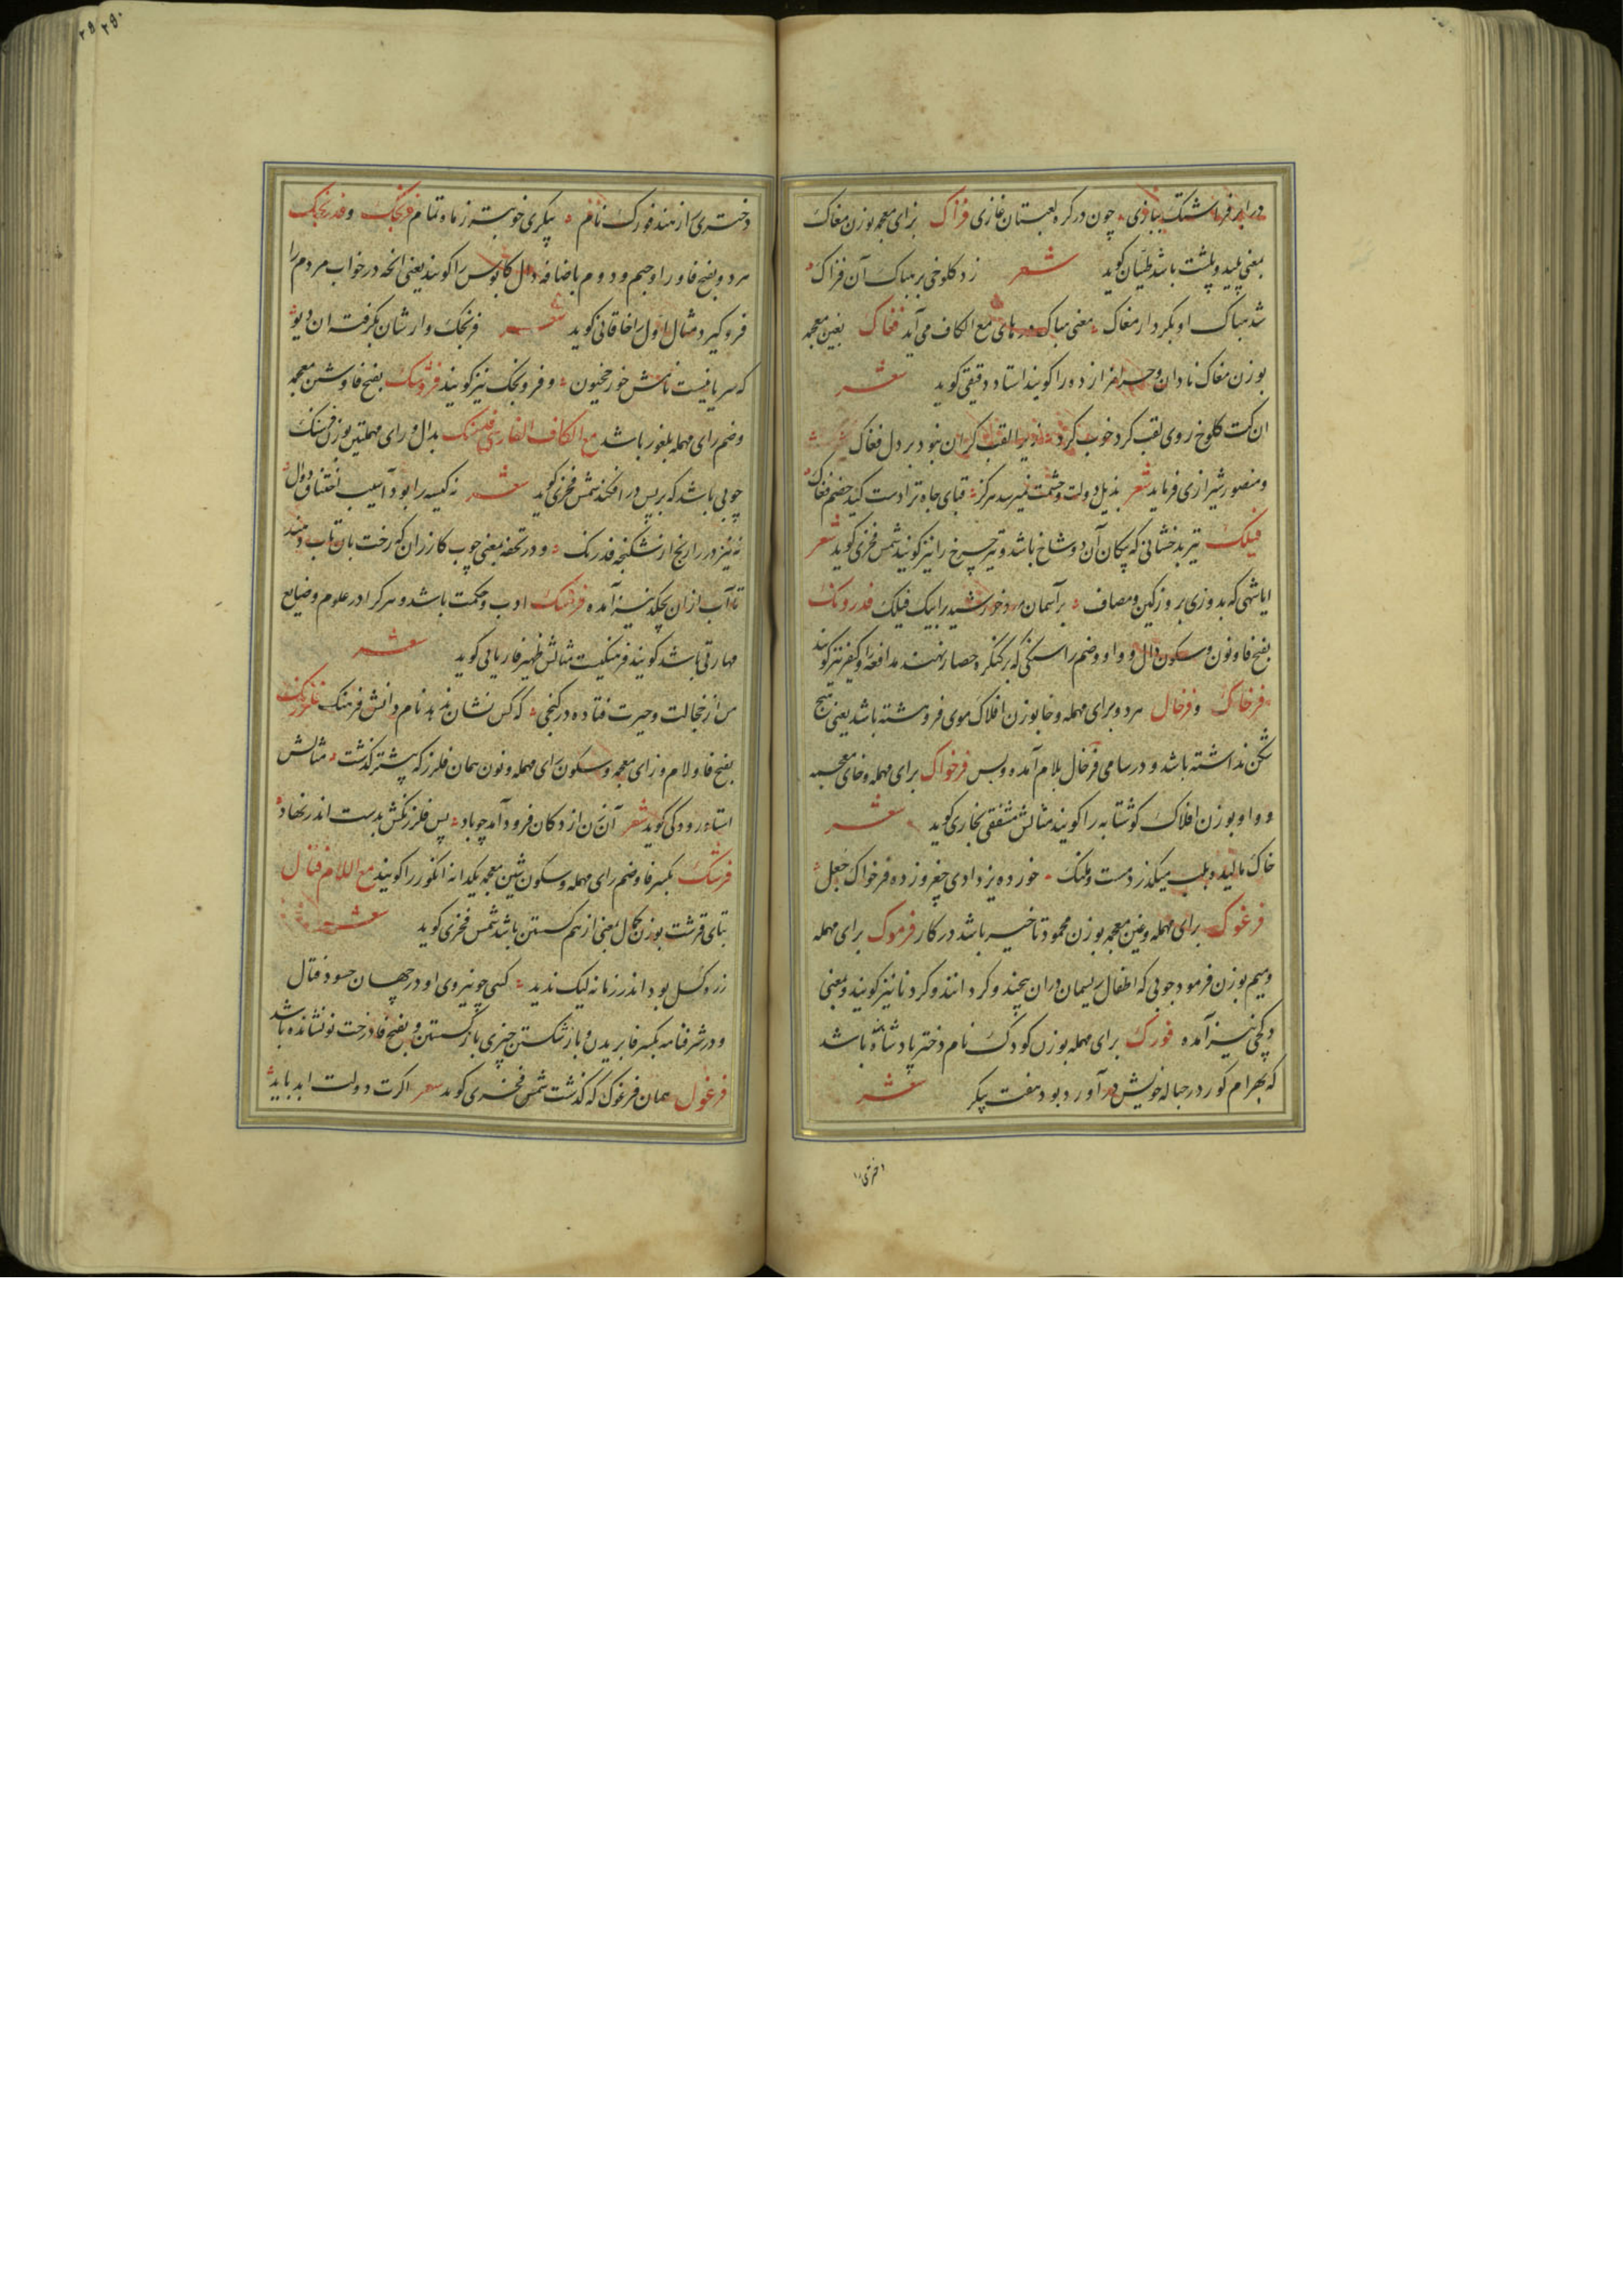 در ابر فراشتک ببازی چون در کره لعبتان غازی فژاک بزای معجمه بوزن مغاک
بمعنی پلید و پلشت باشد طیّان گوید شعر زد کلوخی بر هباک آن فژاک
شد هباک او بکردار مغاک معنی هباک در های مع الکاف می آید فغاک بغین معجمه
بوزن مغاک نادان و حرامزاده را گویند استاد دقیقی گوید شعر
ان کت کلوخ روی لقب کرد خوب کرد زیرا لقب گران نبود بر دل فغاک
و منصور شیرازی فرماید شعر بذیل دولت و حشمت نمیرسد هرگز قبای جاه ترا دست کید خصم فغاک
فیلک تیر بدخشانی که پیکان آن دوشاخ باشد و تیر چرخ را نیز گویند شمس فخری گوید شعر
ایا شهی که بدوزی بروز کین و مصاف بر آسمان دو خورشید را بیک فیلک فدرونک
بفتح فا و نون و سکون دال و واو و ضم را سنگی که بر کنگره حصار نهند مدافعه را و کیفر نیز گویند
فرخاک و فرخال هر دو برای مهمله و خا بوزن افلاک موی فروهشته باشد یعنی هیچ
شکن نداشته باشد و در سامی فرخال بلام آمده و بس فرخواک برای مهمله و خای معجمه
و واو بوزن افلاک کوشتابه را گویند مثالش مشفقی بخاری گوید شعر
خاک مالیده و لب میکند ز دست و ملنک خورده یزدادی چغر و زده فرخواک جعل
فرغوک برای مهمله و غین معجمه بوزن محمود تاخیر باشد در کار فرموک برای مهمله
و میم بوزن فرمود چوبی که اطفال ریسمان دران پیچند و گردانند و کردنا نیز گویند و بمعنی
دوکچی نیز آمده فورک برای مهمله بوزن کودک نام دختر پادشاه باشد
که بهرام گور در حباله خویش در آورد بود هفت پیکر شعر
دختری از هند فورک نام پیکری خوبتر ز ماه تمام فرنجک و فدرنجک
هر دو بفتح فا و را و جیم و دوم باضافه دال کابوس را گویند یعنی انچه در خواب مردم را
فرو گیرد مثال اول را خاقانی گوید شعر فرنجک وارشان بگرفته ان دیو
که سریانیست نامش خورخجیون و فرونجک نیز گویند فروشک بفتح فا و شین معجمه
و ضم رای مهمله بلغور باشد مع الکاف الفارسی فدرنک بدال و رای مهملتین بوزن خدنک
چوبی باشد که بر پس در افکنند شمس فخری گوید شعر نه کیسه را بود آسیب اختناق دوال
نه نیز در را رنج از شکنجه فدرنک و در تحفه بمعنی چوب کازران که رخت بان تاب دهند
تا آب ازان بچکد نیز آمده فرهنک ادب و حکمت باشد و هر که را در علوم و صنایع
مهارتی باشد گویند فرهنگیست مثالش ظهیر فاریابی گوید شعر
من از خجالت و حیرت فتاده در کنجی که کس نشان ندهد نام دانش و فرهنک فلرزنک
بفتح فا و لام و زای معجمه و سکون رای مهمله و نون همان فلرز که پیشتر گذشت مثالش
استاد رودکی گوید شعر آن زن از دکان فرود آمد چو باد پس فلرزنکش بدست اندر نهاد
فرشک بکسر فا و ضم رای مهمله و سکون شین معجمه یکدانه انگور را گویند مع اللام فتال
بتای قرشت بوزن کمال بمعنی از هم گسستن باشد شمس فخری گوید شعر
زره گسل بود اندر زمانه لیک ندید کسی چو نیروی او در جهان حسود فتال
و در شرفنامه بکسر فا بریدن و باز شکستن چیزی باز گسستن و بفتح فا درخت نو نشانده باشد
فرغول همان فرغوک که گذشت شمس فخری گوید شعر اگرت دولت ابد باید
دختری
۲۹۰